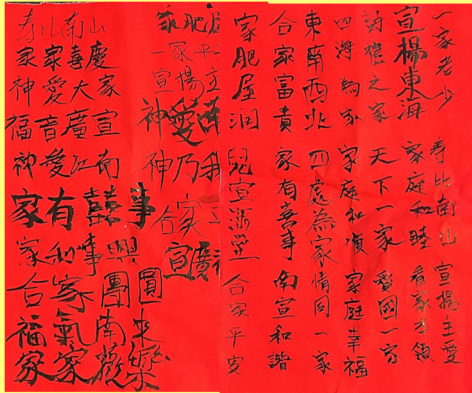 一家老少 壽比南山 宣揚主愛
宣揚東海 家庭和睦 看家本領
詩禮之家 天下一家 愛國一家
四海為家 家庭和順 家庭幸福
東南西北 四處為家 情同一家
合家富貴 家有喜事 南宣和諧
家肥屋潤 兒宣滿堂 合家平安
家肥
一家平
宣揚主
神愛南我
神乃
合家
宣廣
壽比南山
家家喜慶
神愛大家
福音廣宣
神愛江南
家有囍事
家和事興
合家團圓
福氣南來
家家歡樂